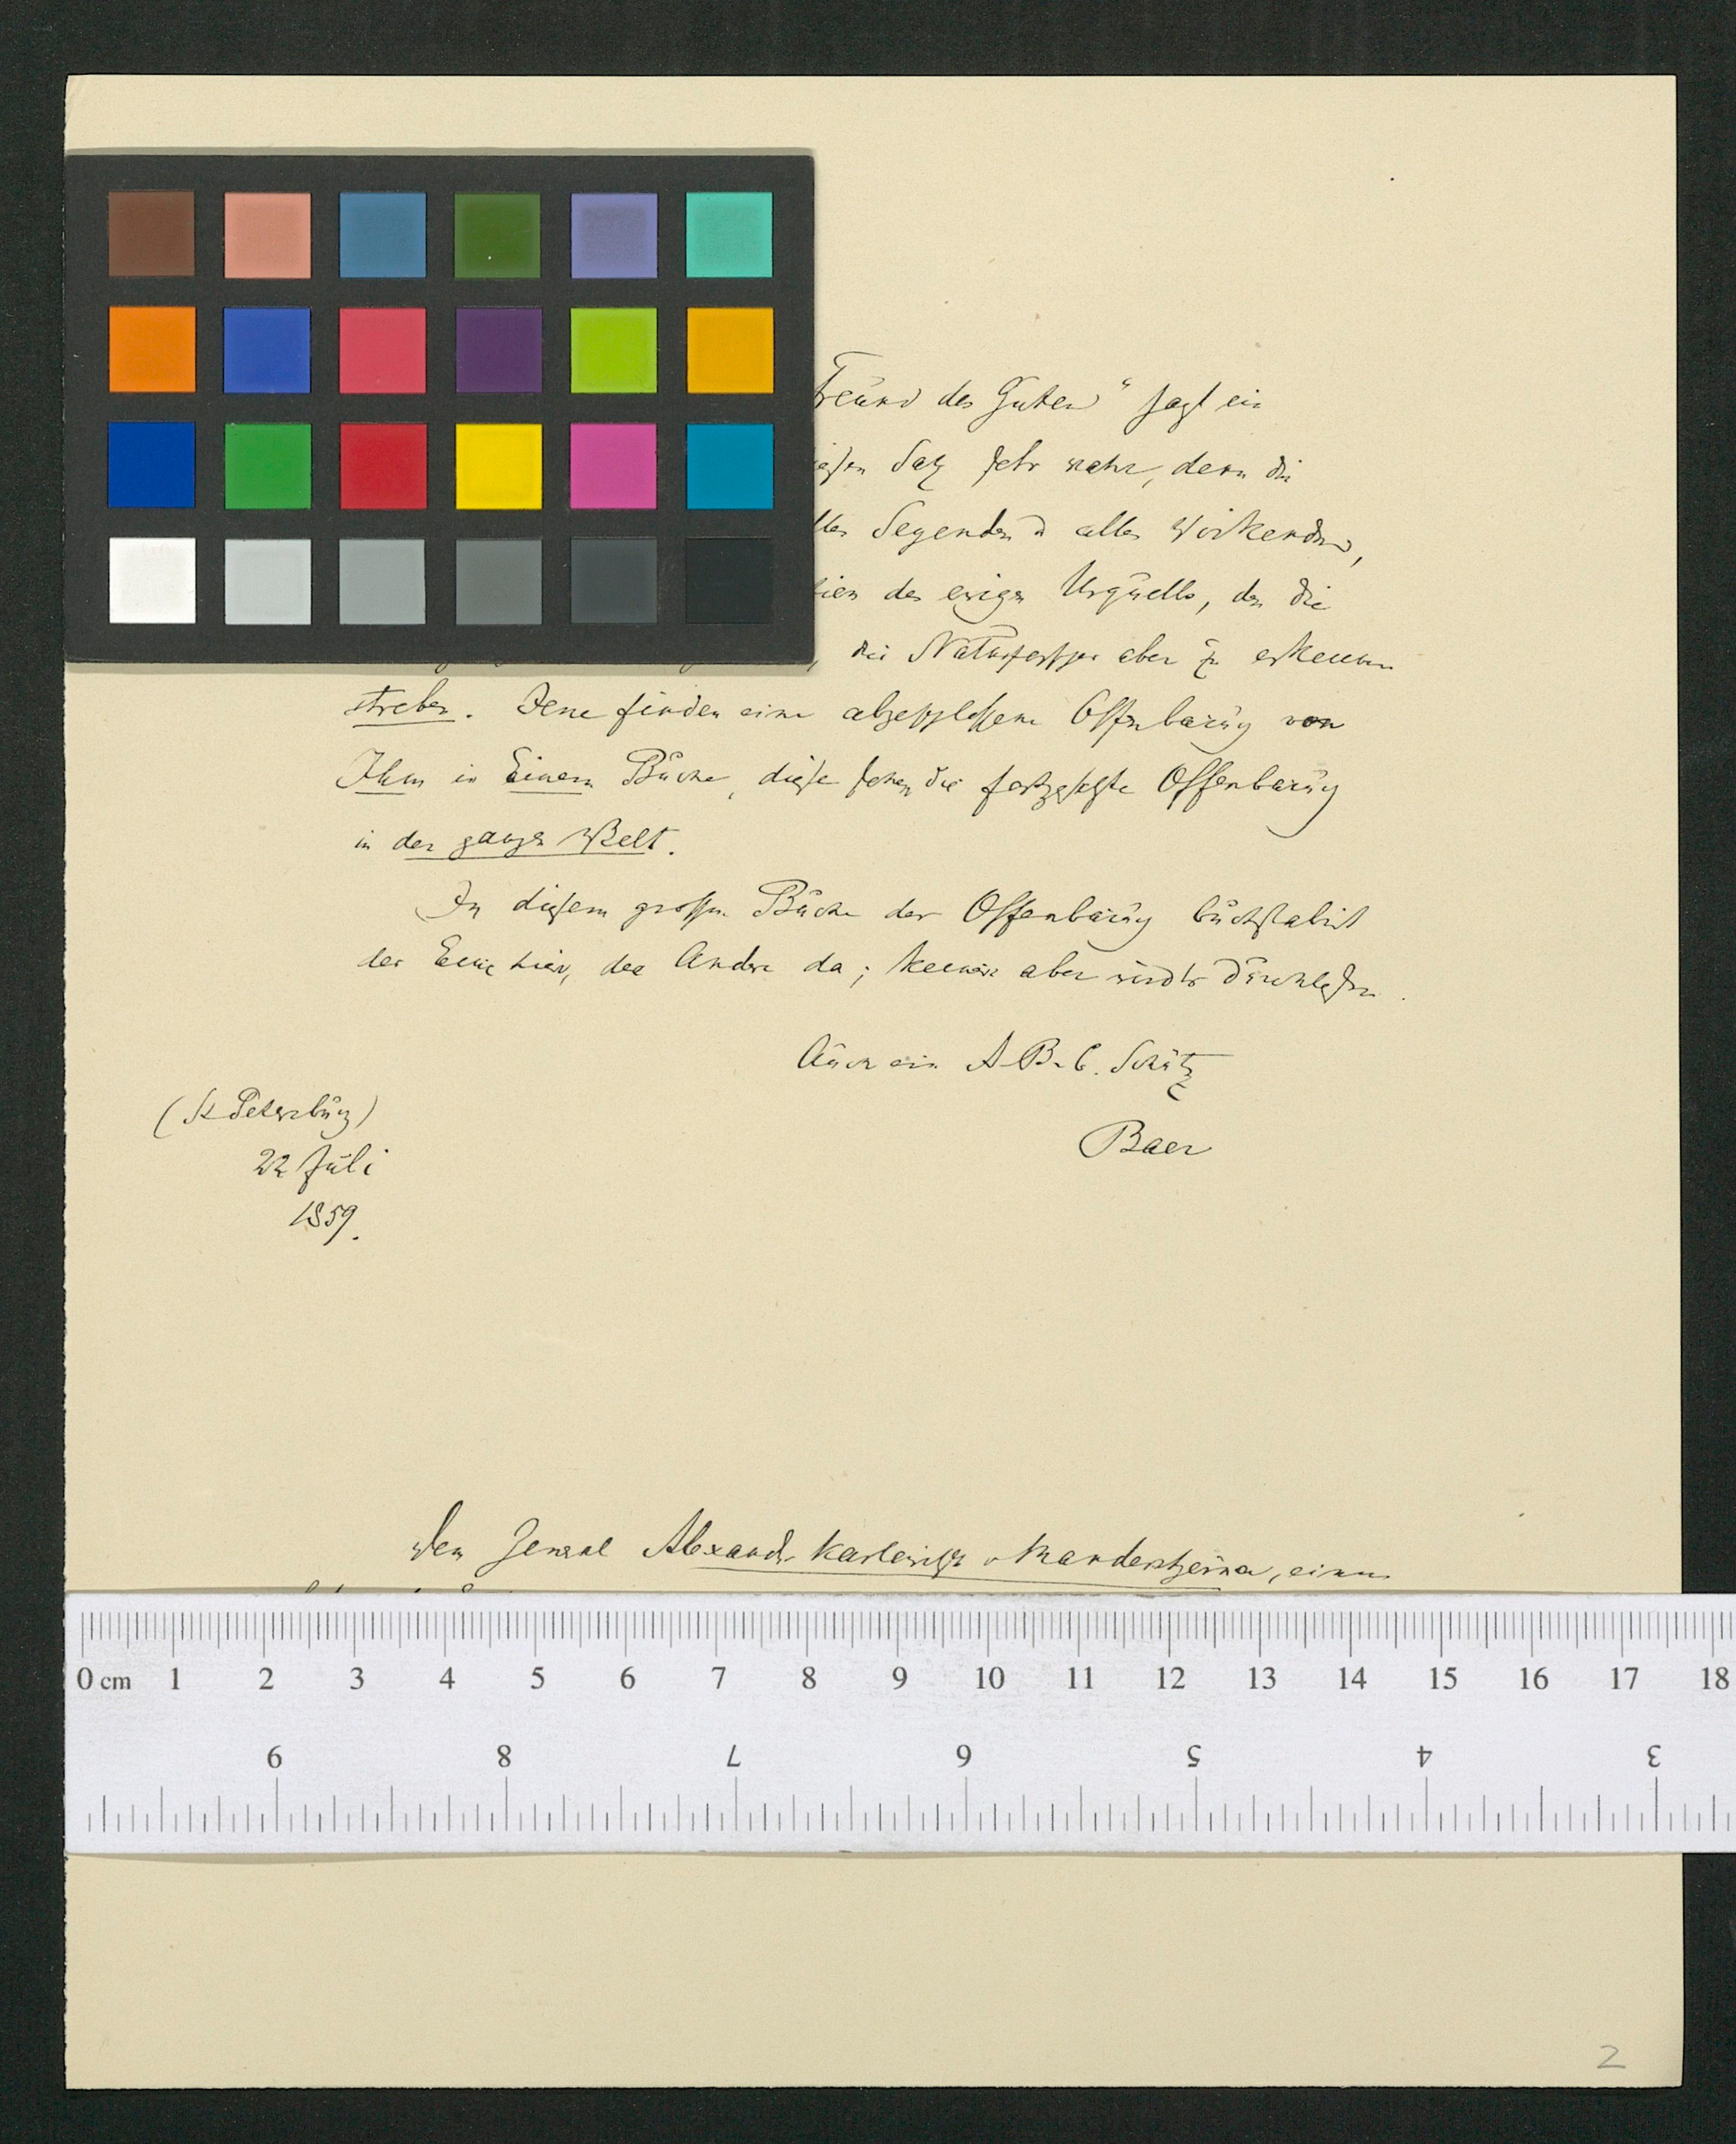 Freund des Guten" sagt ein
Satz sehr wahr, denn die
Segenden u alles Wirkenden,
des ewigen Urquells, den die
, die Naturforscher aber zu erkennen
streben. Jene finden eine abgeschlossene Offenbarung von
Ihm in Einem Buche, diese sehen die fortgesetzte Offenbarung
in der ganzen Welt.
In diesem grossen Buche der Offenbarung buchstabirt
der Eine hier, der Andre da; keiner aber wird's durchlesen.
Auch ein A-B-C. Schütz
Baer
(St Petersburg)
22 Juli
1859.
Dem General Alexander Karlewitsch v Manderstjerna, einem
0 cm 1 2 3 4 5 6 7 8 9 10 11 12 13 14 15 16 17 18
9 8 7 6 5 4 3
2